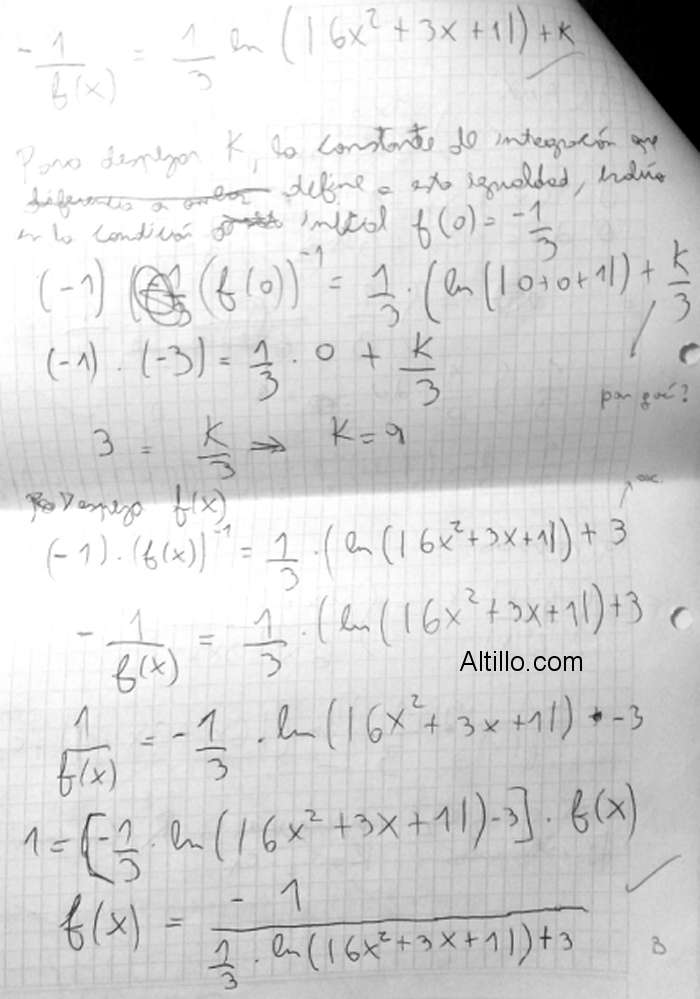 - 1/f(x) = 1/3 ln (|6x² + 3x + 1|) + K
Para despejar K, la constante de integración que
diferencia a define a esta igualdad,
en la condición inicial f(0) = -1/3
(-1) (f(0))⁻¹ = 1/3 · (ln (|0+0+1|) + K/3
(-1) · (-3) = 1/3 · 0 + K/3
por qué?
3 = K/3 ⇒ K = 9
Despejo f(x)
ok
(-1) · (f(x))⁻¹ = 1/3 · (ln (|6x² + 3x + 1|) + 3
- 1/f(x) = 1/3 · (ln (|6x² + 3x + 1|) + 3
Altillo.com
1/f(x) = - 1/3 . ln (|6x² + 3x + 1|) - 3
1 = [- 1/3 · ln (|6x² + 3x + 1|) - 3] · f(x)
f(x) = - 1 / 1/3 · ln (|6x² + 3x + 1|) + 3
B